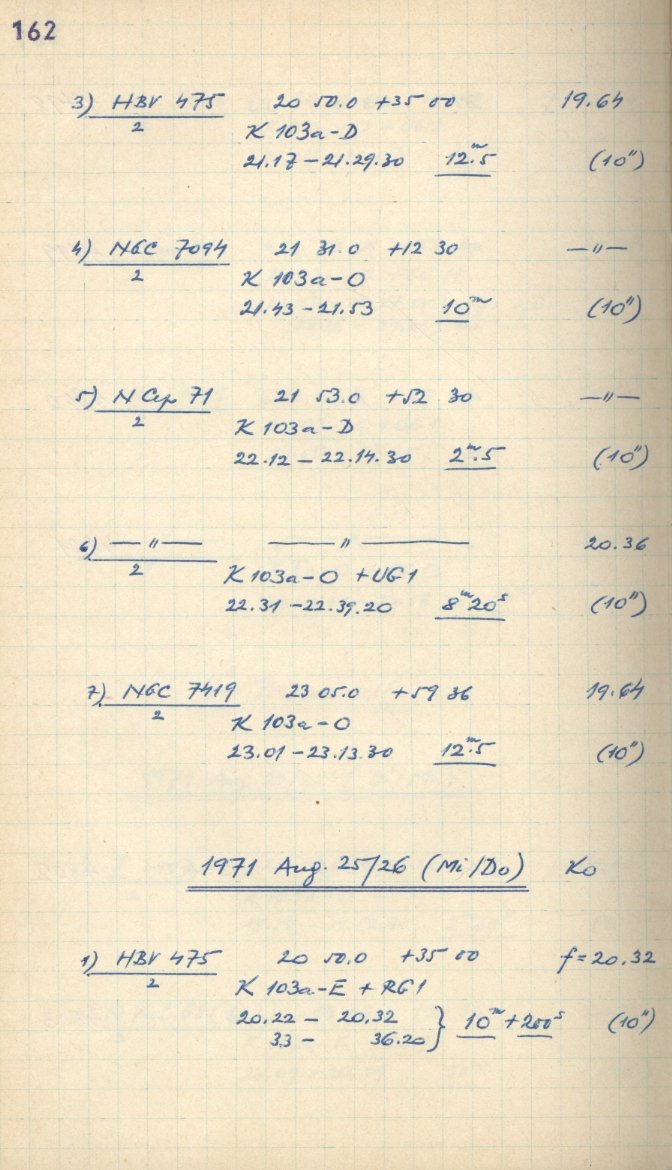 162
3) HBV 475 20 50.0 +35 00 19.64
2 K 103a-D
21.17 – 21.29.30 12.ᵐ5 (10")
4) NGC 7094 21 31.0 +12 30 —"—
2 K 103a-O
21.43 – 21.53 10ᵐ (10")
5) N Cep 71 21 53.0 +52 30 —"—
2 K 103a-D
22.12 – 22.14.30 2.ᵐ5 (10")
6) —"— —"— 20.36
2 K 103a-O + UG1
22.31 – 22.39.20 8ᵐ20ˢ (10")
7) NGC 7419 23 05.0 +59 36 19.64
2 K 103a-O
23.01 – 23.13.30 12.ᵐ5 (10")
1971 Aug. 25/26 (Mi/Do) Ko
1) HBV 475 20 50.0 +35 00 f=20.32
2 K 103a-E + RG1
20.22 – 20.32 } 10ᵐ + 200ˢ (10")
33 – 36.20